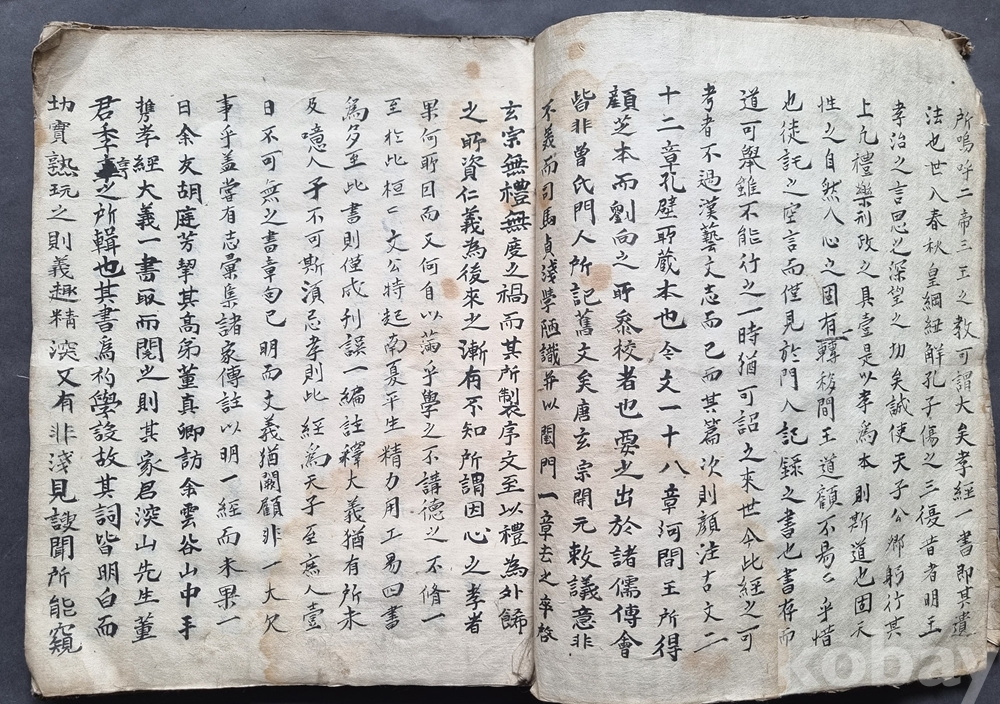 所嗚呼二帝三王之教可謂大矣孝經一書即其遺
法也世入春秋皇綱紐解孔子傷之三復昔者明王
孝治之言思之深望之切矣誠使天子公卿躬行其
上凡禮樂刑政之具壹是以孝為本則斯道也固天
性之自然人心之固有一轉移間王道顧不易〻乎惜
也徒託之空言而僅見於門人記録之書也書存而
道可舉雖不能行之一時猶可詔之來世今此經之可
考者不過漢藝文志而已而其篇次則顔注古文二
十二章孔壁所蔵本也今文一十八章河間王所得
顔芝本而劉向之所叅校者也要之出於諸儒傳會
皆非曾氏門人所記舊文矣唐玄宗開元敕議意非
不義而司馬貞淺學陋識并以閨門一章去之卒啓
玄宗無禮無度之禍而其所製序文至以禮為外飾
之所資仁義為後來之漸有不知所謂因心之孝者
果何所因而又何自以萠乎學之不講德之不脩一
至於此桓〻文公特起南夏平生精力用工易四書
為多至此書則僅成刊誤一編註釋大義猶有所未
及噫人子不可斯須忘孝則此經為天子至庶人壹
日不可無之書章句已明而文義猶闕顧非一大欠
事乎盖嘗有志彙集諸家傳註以明一經而未果一
日余友胡庭芳挈其高弟董真卿訪余雲谷山中手
携孝經大義一書取而閱之則其家君深山先生董
君季亨之所輯也其書為初學設故其詞皆明白而
切實熟玩之則義趣精深又有非淺見謏聞所能窺
kobay